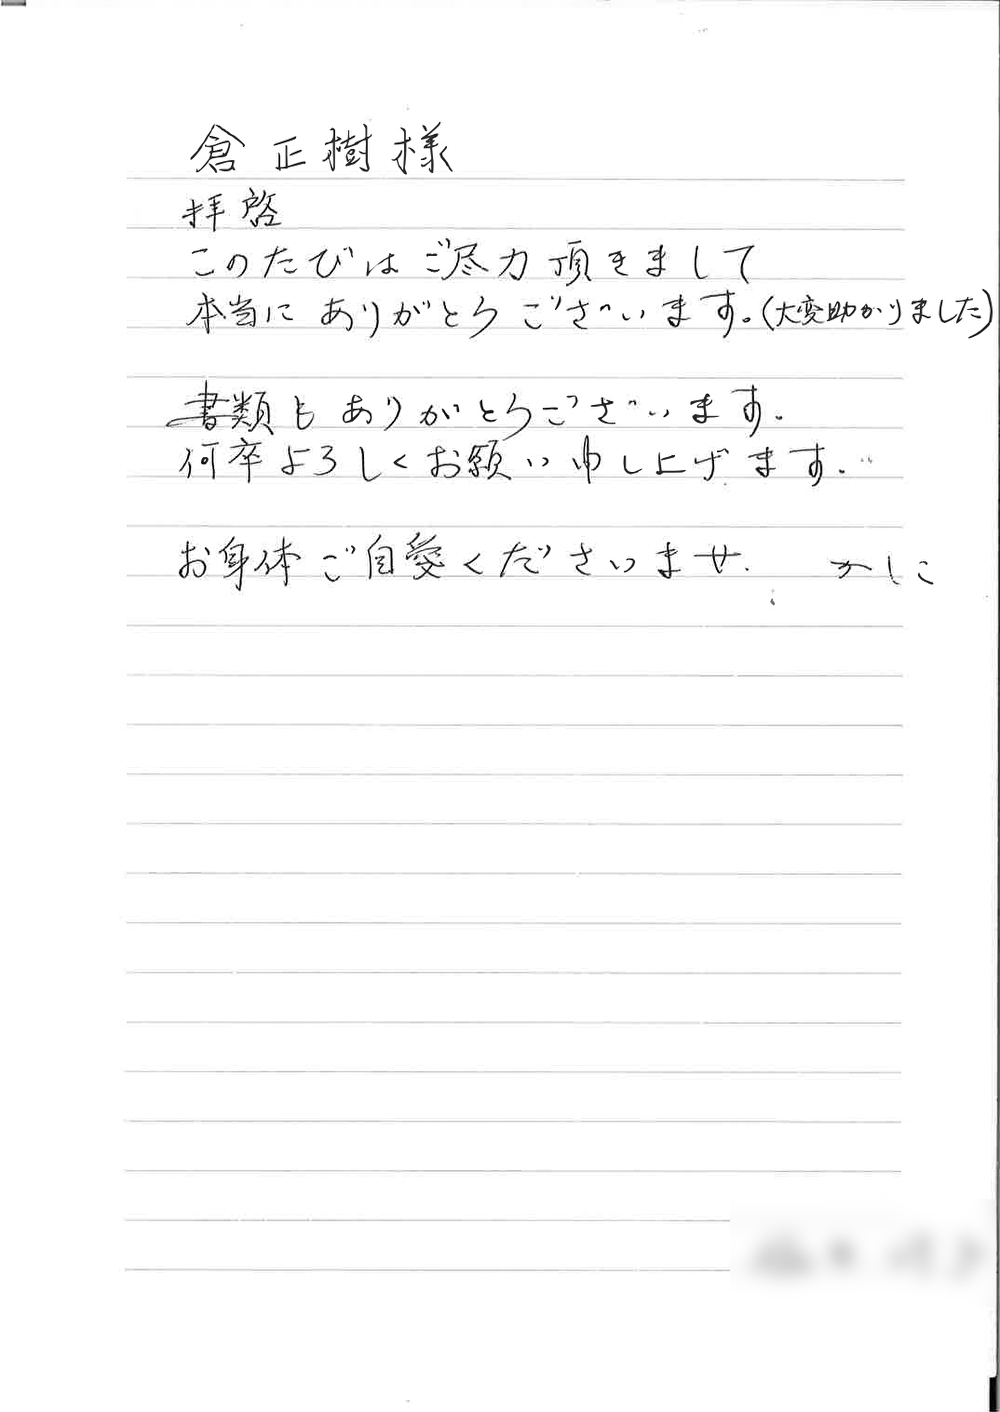 倉正樹様
拝啓
このたびはご尽力頂きまして
本当にありがとうございます。(大変助かりました)
書類もありがとうございます。
何卒よろしくお願い申し上げます。
お身体ご自愛くださいませ。 かしこ